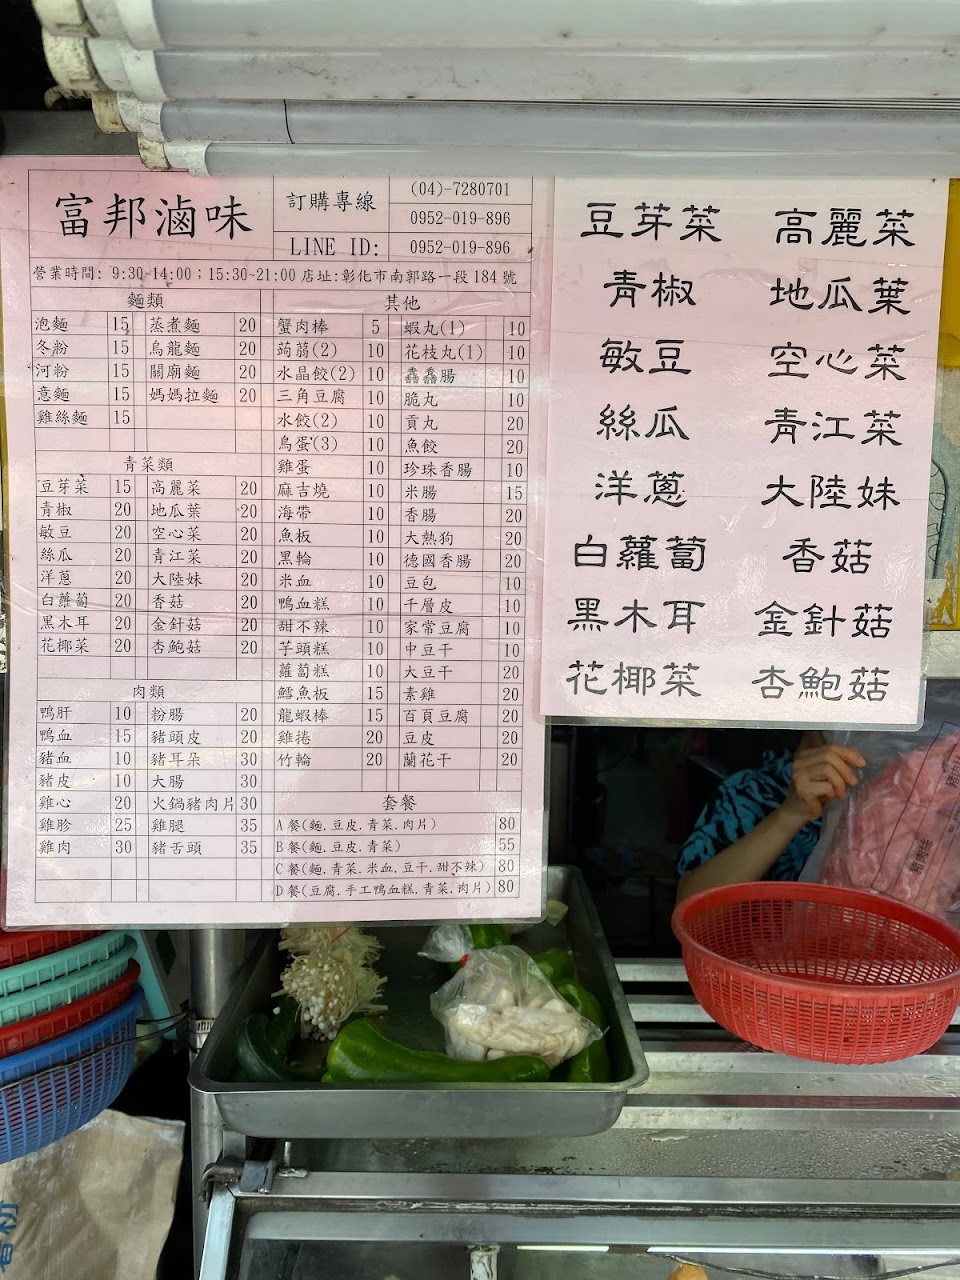 富邦滷味
訂購專線 (04)-7280701
0952-019-896
LINE ID: 0952-019-896
營業時間: 9:30~14:00;15:30~21:00 店址:彰化市南郭路一段184號
麵類
泡麵 15 蒸煮麵 20
冬粉 15 烏龍麵 20
河粉 15 關廟麵 20
意麵 15 媽媽拉麵 20
雞絲麵 15
青菜類
豆芽菜 15 高麗菜 20
青椒 20 地瓜葉 20
敏豆 20 空心菜 20
絲瓜 20 青江菜 20
洋蔥 20 大陸妹 20
白蘿蔔 20 香菇 20
黑木耳 20 金針菇 20
花椰菜 20 杏鮑菇 20
肉類
鴨肝 10 粉腸 20
鴨血 15 豬頭皮 20
豬血 10 豬耳朵 30
豬皮 10 大腸 30
雞心 20 火鍋豬肉片 30
雞胗 25 雞腿 35
雞肉 30 豬舌頭 35
其他
蟹肉棒 5 蝦丸(1) 10
蒟蒻(2) 10 花枝丸(1) 10
水晶餃(2) 10 鑫鑫腸 10
三角豆腐 10 脆丸 10
水餃(2) 10 貢丸 20
鳥蛋(3) 10 魚餃 20
雞蛋 10 珍珠香腸 10
麻吉燒 10 米腸 15
海帶 10 香腸 20
魚板 10 大熱狗 20
黑輪 10 德國香腸 20
米血 10 豆包 10
鴨血糕 10 千層皮 10
甜不辣 10 家常豆腐 10
芋頭糕 10 中豆干 10
蘿蔔糕 10 大豆干 20
鱈魚板 15 素雞 20
龍蝦棒 15 百頁豆腐 20
雞捲 20 豆皮 20
竹輪 20 蘭花干 20
套餐
A餐(麵.豆皮.青菜.肉片) 80
B餐(麵.豆皮.青菜) 55
C餐(麵.青菜.米血.豆干.甜不辣) 80
D餐(豆腐.手工鴨血糕.青菜.肉片) 80
豆芽菜 高麗菜
青椒 地瓜葉
敏豆 空心菜
絲瓜 青江菜
洋蔥 大陸妹
白蘿蔔 香菇
黑木耳 金針菇
花椰菜 杏鮑菇